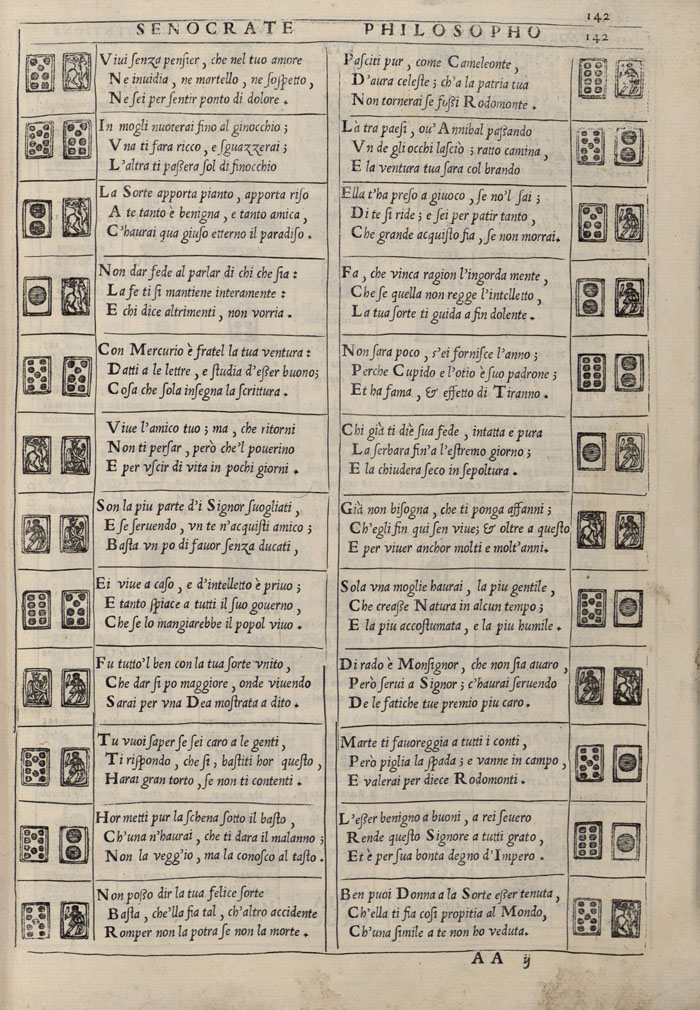 142
SENOCRATE PHILOSOPHO
142
Viui ſenza penſier, che nel tuo amore
Ne inuidia, ne martello, ne ſoſpetto,
Ne ſei per ſentir ponto di dolore.
In mogli nuoterai fino al ginocchio;
Vna ti fara ricco, e ſguazzerai;
L'altra ti paßera ſol di finocchio
La Sorte apporta pianto, apporta riſo
A te tanto è benigna, e tanto amica,
C'haurai qua giuſo etterno il paradiſo.
Non dar fede al parlar di chi che ſia:
La fe ti ſi mantiene interamente:
E chi dice altrimenti, non vorria.
Con Mercurio è fratel la tua ventura:
Datti a le lettre, e ſtudia d'eßer buono;
Coſa che ſola inſegna la ſcrittura.
Viue l'amico tuo; ma, che ritorni
Non ti penſar, però che'l pouerino
E per vſcir di vita in pochi giorni.
Son la piu parte d'i Signor ſuogliati,
E ſe ſeruendo, vn te n'acquiſti amico;
Baſta vn po di fauor ſenza ducati,
Ei viue a caſo, e d'intelletto è priuo;
E tanto ſpiace a tutti il ſuo gouerno,
Che ſe lo mangiarebbe il popol viuo.
Fu tutto'l ben con la tua ſorte vnito,
Che dar ſi po maggiore, onde viuendo
Sarai per vna Dea moſtrata a dito.
Tu vuoi ſaper ſe ſei caro a le genti,
Ti riſpondo, che ſi, baſtiti hor queſto,
Harai gran torto, ſe non ti contenti.
Hor metti pur la ſchena ſotto il baſto,
Ch'una n'haurai, che ti dara il malanno;
Non la vegg'io, ma la conoſco al taſto.
Non poßo dir la tua felice ſorte
Baſta, che'lla ſia tal, ch'altro accidente
Romper non la potra ſe non la morte.
Paſciti pur, come Cameleonte,
D'aura celeſte; ch'a la patria tua
Non tornerai ſe fußi Rodomonte.
Là tra paeſi, ou'Annibal paßando
Vn de gli occhi laſciò; ratto camina,
E la ventura tua ſara col brando
Ella t'ha preſo a giuoco, ſe no'l ſai;
Di te ſi ride; e ſei per patir tanto,
Che grande acquiſto fia, ſe non morrai.
Fa, che vinca ragion l'ingorda mente,
Che ſe quella non regge l'intelletto,
La tua ſorte ti guida a fin dolente.
Non ſara poco, s'ei forniſce l'anno;
Perche Cupido e l'otio è ſuo padrone;
Et ha fama, & effetto di Tiranno.
Chi già ti diè ſua fede, intatta e pura
La ſerbara fin'a l'eſtremo giorno;
E la chiudera ſeco in ſepoltura.
Già non biſogna, che ti ponga affanni;
Ch'egli fin qui ſen viue; & oltre a queſto
E per viuer anchor molti e molt'anni.
Sola vna moglie haurai, la piu gentile,
Che creaße Natura in alcun tempo;
E la piu accoſtumata, e la piu humile.
Di rado è Monſignor, che non ſia auaro,
Però ſerui a Signor; c'haurai ſeruendo
De le fatiche tue premio piu caro.
Marte ti fauoreggia a tutti i conti,
Però piglia la ſpada; e vanne in campo,
E valerai per diece Rodomonti.
L'eßer benigno a buoni, a rei ſeuero
Rende queſto Signore a tutti grato,
Et è per ſua bonta degno d'Impero.
Ben puoi Donna a la Sorte eßer tenuta,
Ch'ella ti fia coſi propitia al Mondo,
Ch'una ſimile a te non ho veduta.
AA ij